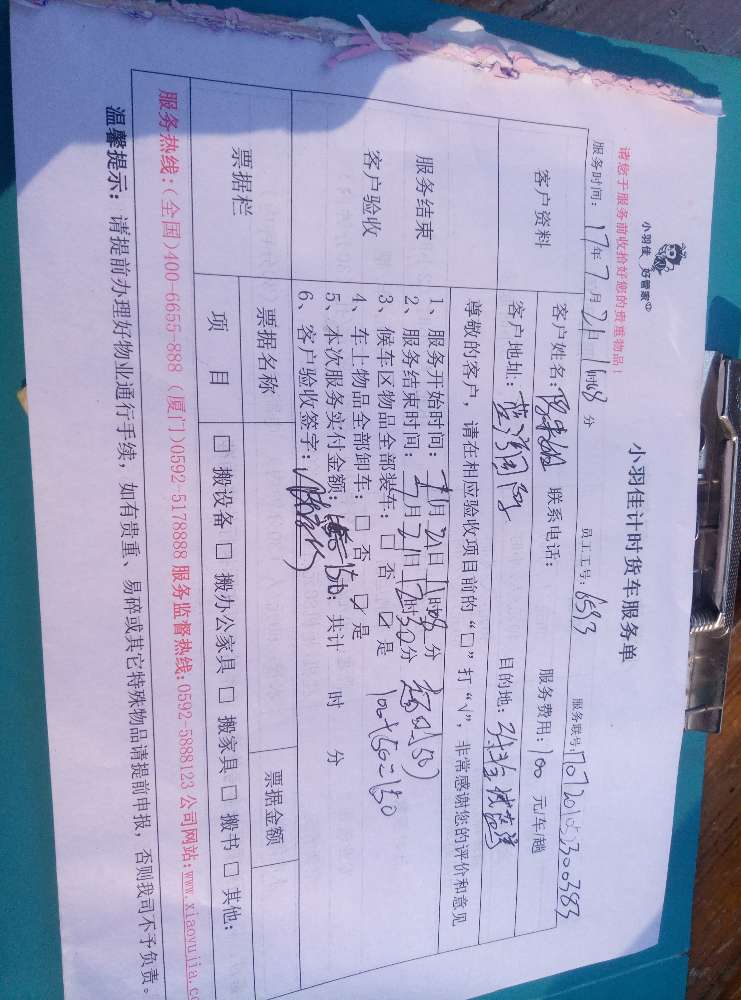 小羽佳 好管家
小羽佳计时货车服务单
请您于服务前收拾好您的贵重物品!
服务时间: 17年7月21日11时08分 员工工号: 6593 服务联号: 170720153300383
客户资料
客户姓名: 联系电话: 服务费用: 100 元/车/趟
客户地址: 目的地:
尊敬的客户, 请在相应验收项目前的“□”打“√”, 非常感谢您的评价和意见
服务结束
客户验收
1、服务开始时间: 7月21日11时08分 超时(50)
2、服务结束时间: 7月21日12时30分 100+50=150
3、候车区物品全部装车: □ 否 ☑ 是
4、车上物品全部卸车: □ 否 ☑ 是
5、本次服务实付金额: 150; 共计 时 分
6、客户验收签字:
票据栏
票据名称 票据金额
项 目 □ 搬设备 □ 搬办公家具 □ 搬家具 □ 搬书 □ 其他:
服务热线:(全国)400-6655-888 (厦门)0592-5178888 服务监督热线:0592-5888123 公司网站:www.xiaoyujia.c
温馨提示: 请提前办理好物业通行手续, 如有贵重、易碎或其它特殊物品请提前申报, 否则我司不予负责。